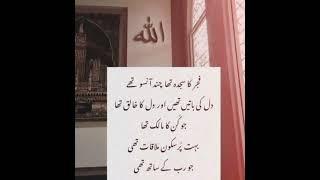 الله
فجر کا سجدہ تھا چند آنسو تھے
دل کی باتیں تھیں اور دل کا خالق تھا
جو کُن کا مالک تھا
بہت پرسکون ملاقات تھی
جو رب کے ساتھ تھی